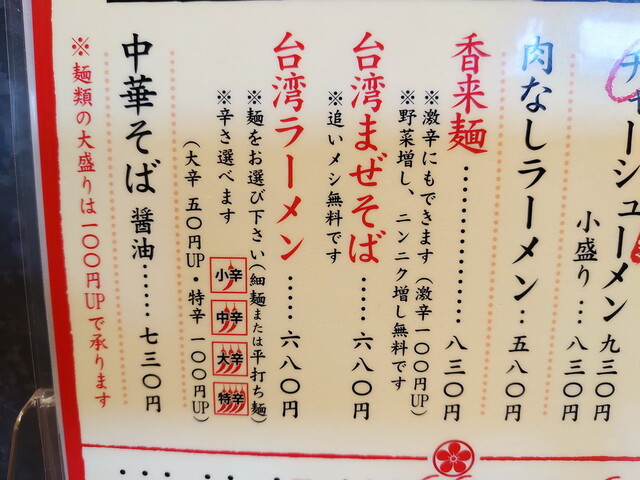 チャーシューメン 九三〇円
小盛り … 八三〇円
肉なしラーメン‥五八〇円
香来麺…………………八三〇円
※激辛にもできます(激辛一〇〇円UP)
野菜増し、ニンニク増し無料です
台湾まぜそば……六八〇円
※追いメシ無料です
台湾ラーメン……六八〇円
※麺をお選び下さい(細麺または平打ち麺)
※辛さ選べます
小辛
中辛
大辛
特辛
(大辛 五〇円UP・特辛 一〇〇円UP)
中華そば 醤油……七三〇円
※麺類の大盛りは一〇〇円UPで承ります